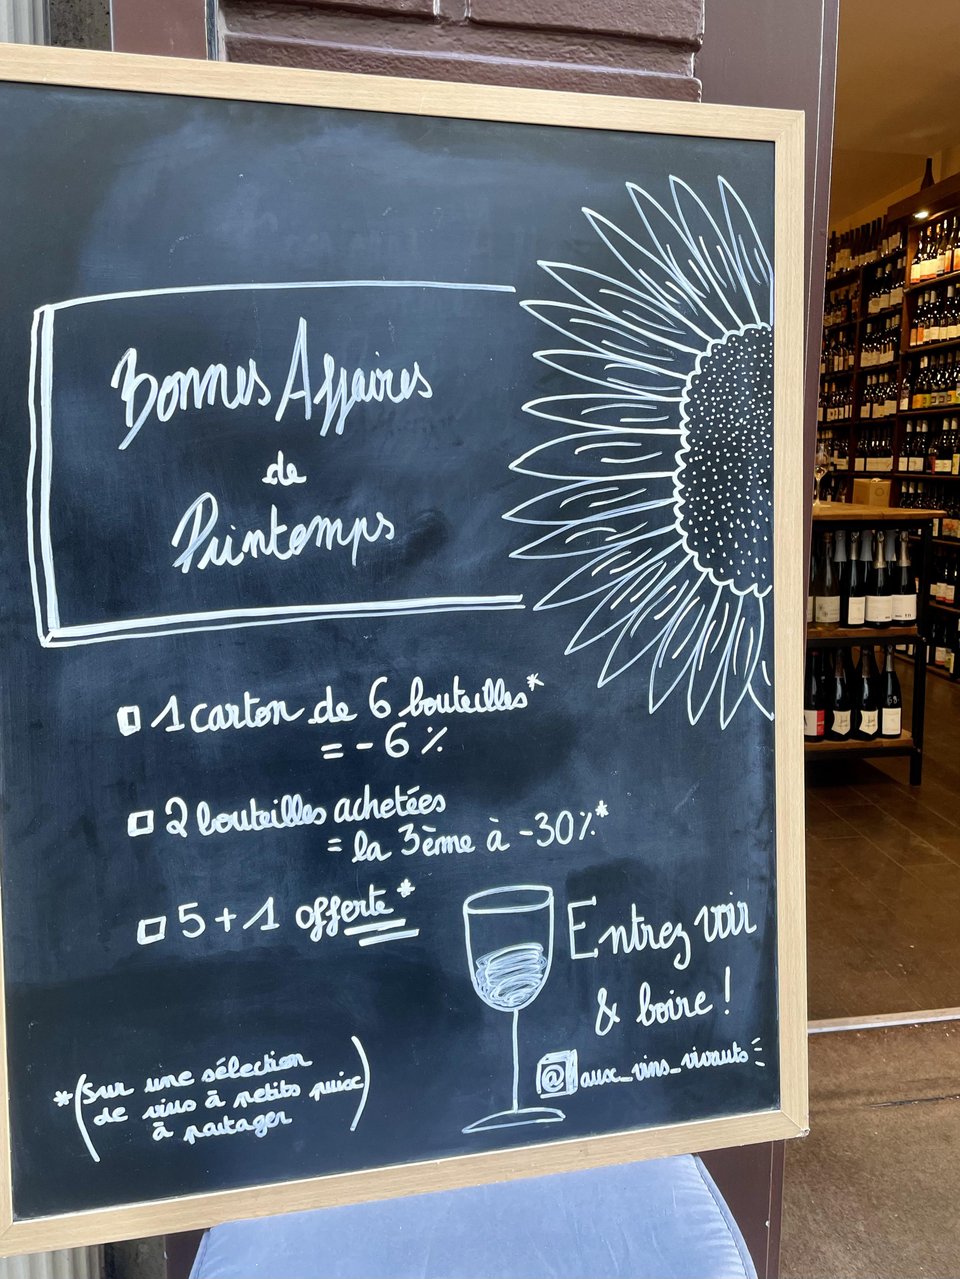 Bonnes Affaires
de
Printemps
1 carton de 6 bouteilles*
= -6 %
2 bouteilles achetées
= la 3ème à -30%*
5 + 1 offerte*
Entrez voir
& boire !
@aux_vins_vivants
*(Sur une sélection
de vins à petits prix
à partager)